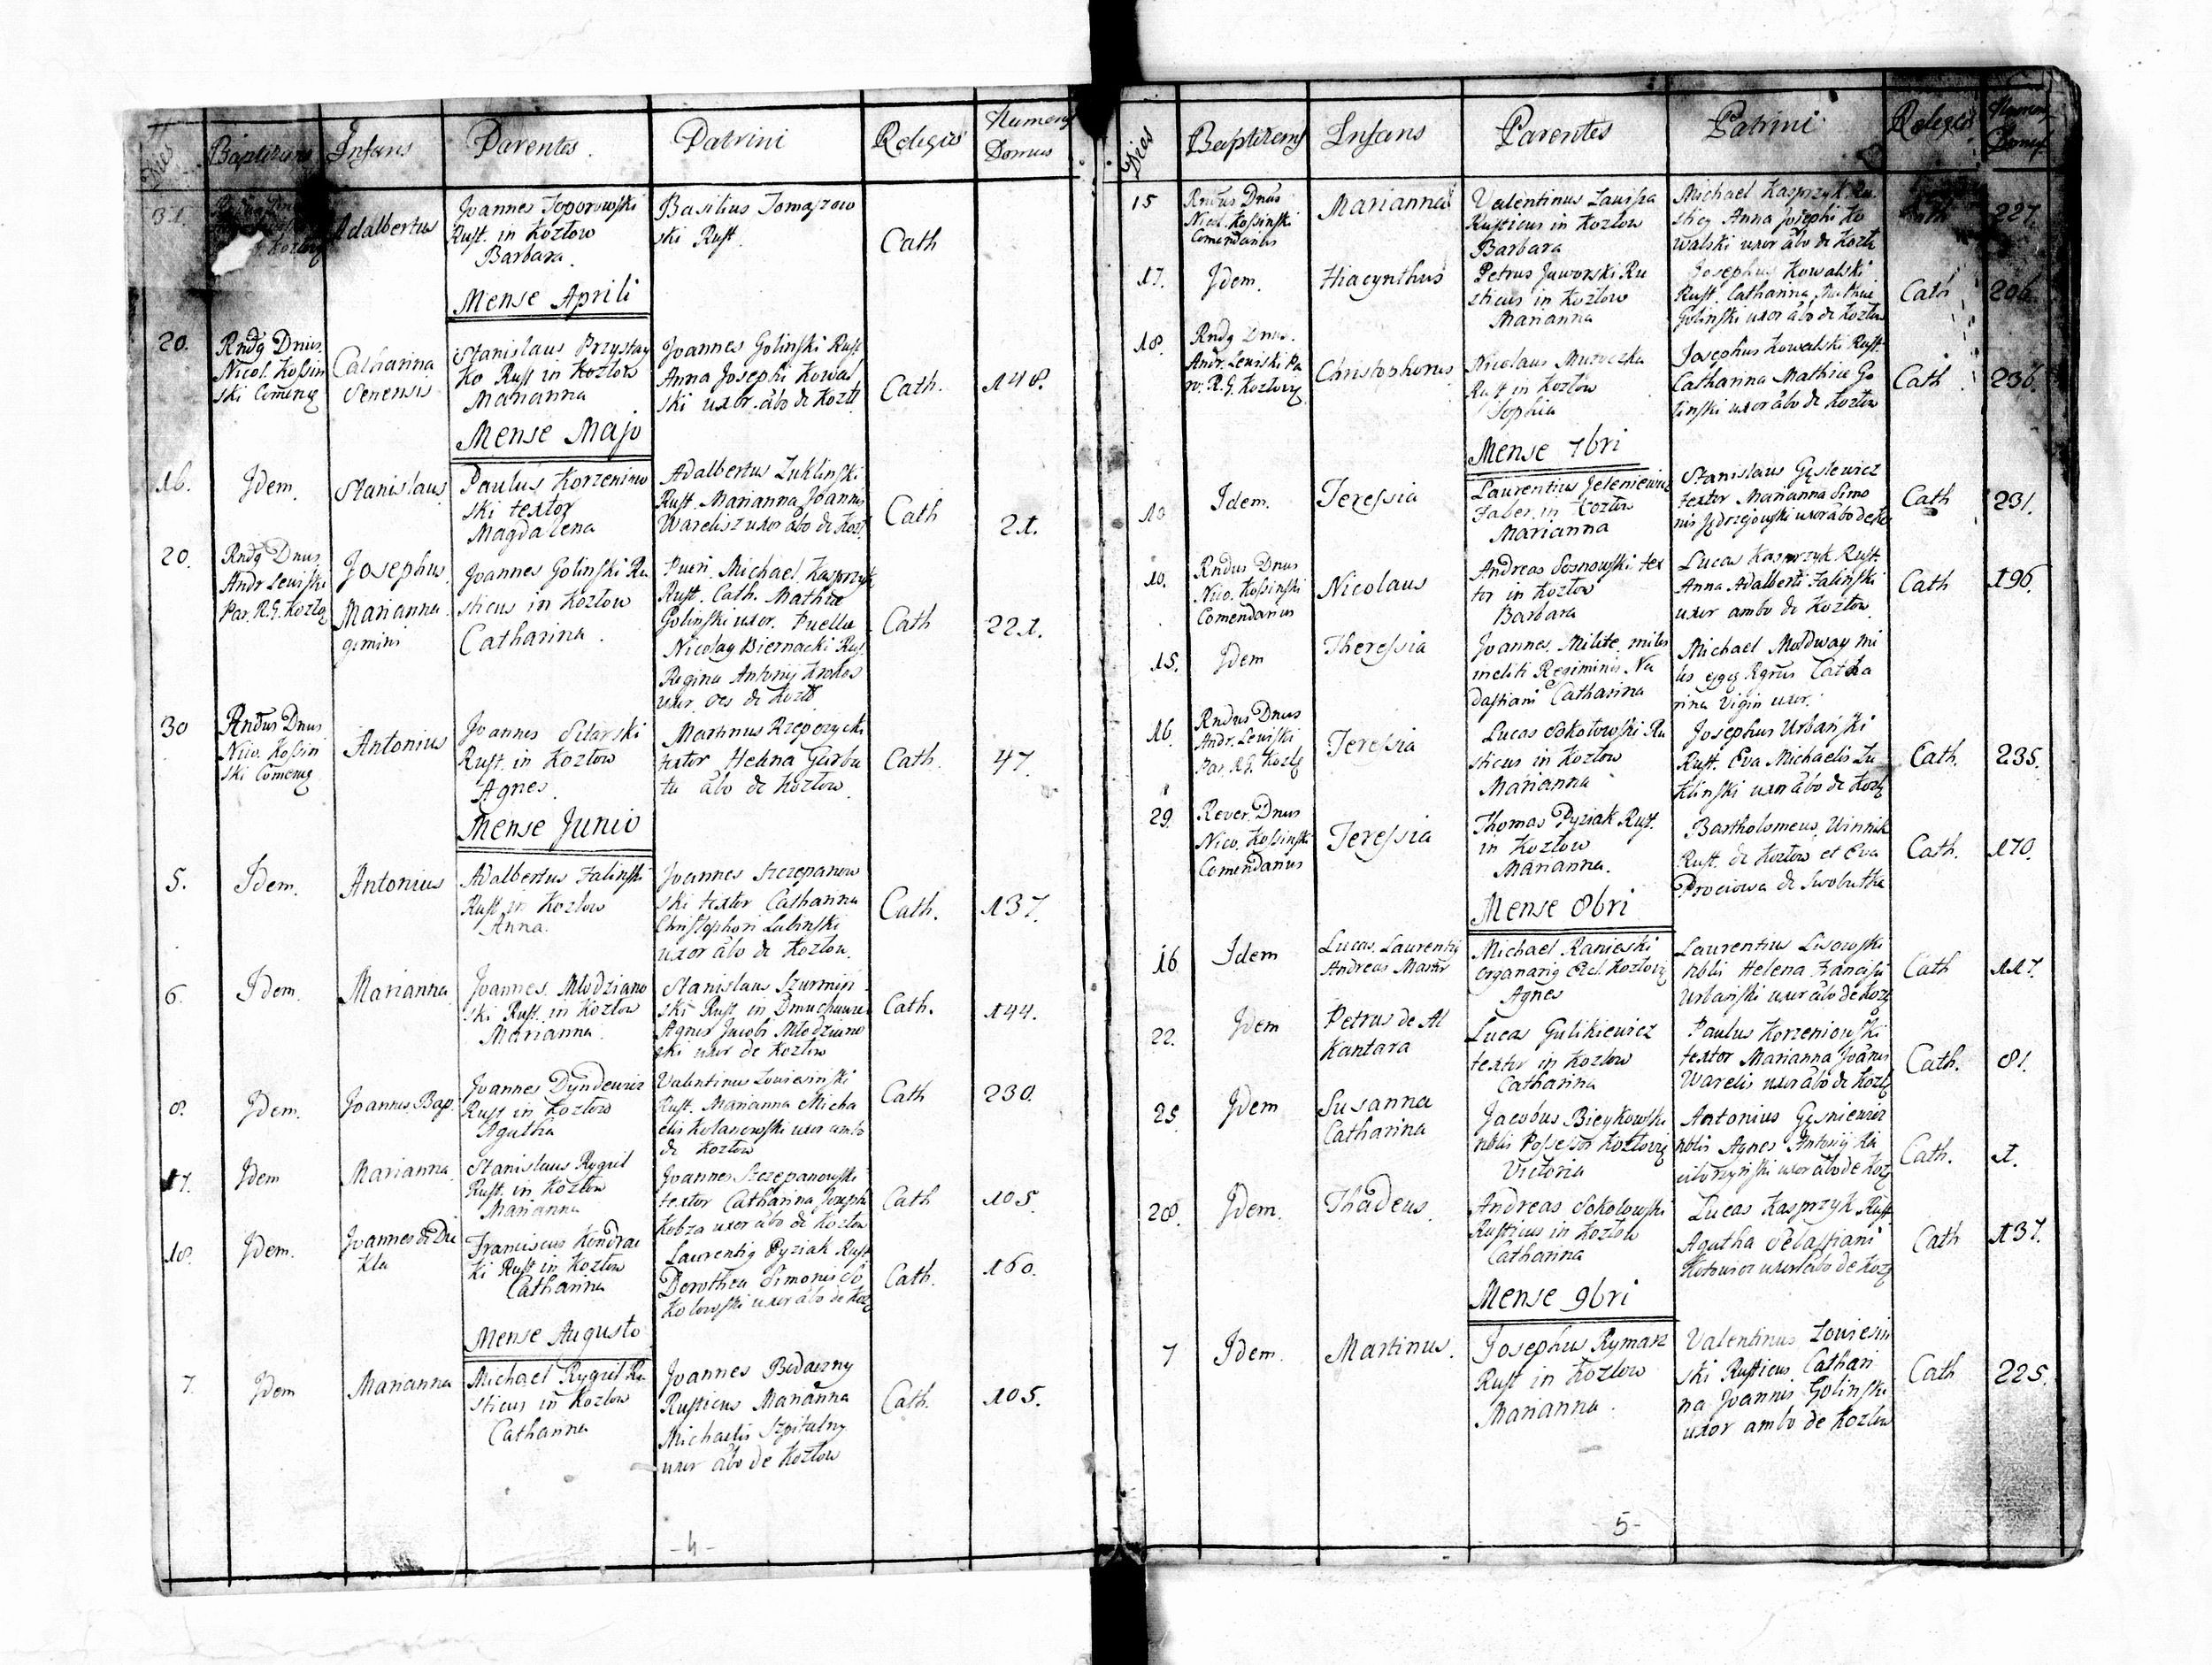 Dies Baptizans Infans Parentes Patrini Religio Numerus Domus
31. Adalbertus
Joannes Toporowski
Rust. in Kozłow
Barbara.
Basilius Tomaszow
ski Rust.
Cath
Mense Aprili
20.
Rndg Dnus.
Nicol. Kossin
ski Comeng
Catharina
Senensis
Stanislaus Przystay
ko Rust in Kozłow
Marianna
Joannes Golinski Rust
Anna Josephi Kowal
ski uxor. abo de Kozł.
Cath.
148.
Mense Majo
16.
Idem.
Stanislaus
Paulus Korzeniow
ski textor
Magdalena
Adalbertus Zuklinski
Rust. Marianna Joannis
Warelisz uxor abo de Kozł.
Cath
21.
20.
Rndg Dnus
Andr Lewiski
Par. R.G. Kozłog
Josephus
Marianna
gemini
Joannes Golinski Ru
sticus in Kozłow
Catharina.
Pueri. Michael Kasprzyk
Rust. Cath. Mathiæ
Golinski uxor. Puellæ
Nicolag Biernacki Rust.
Regina Antonij Krokos
uxor. oes de Kozł.
Cath
221.
30
Rndus Dnus
Nico. Kossin
ski Comeng
Antonius
Joannes Silarski
Rust. in Kozłow
Agnes.
Martinus Rzepczycki
textor Helena Garbu
ta abo de Kozłow.
Cath.
47.
Mense Junio
5.
Idem.
Antonius
Adalbertus Falinski
Rust in Kozłow
Anna.
Joannes Szczepanow
ski textor Catharina
Christophori Lubinski
uxor abo de Kozłow.
Cath.
137.
6.
Idem.
Marianna
Joannes Młodziano
ski Rust. in Kozłow
Marianna.
Stanislaus Szurmin
ski Rust in Dmuchawa
Agnes Jacobi Młodziano
ski uxor de Kozłow
Cath.
144.
8.
Idem.
Joannes Bap.
Joannes Dyndewicz
Rust in Kozłow
Agatha
Valentinus Lowiesinski
Rust. Marianna Micha
elis Kolanowski uxor ambo
de Kozłow
Cath
230.
17.
Idem
Marianna
Stanislaus Rygiel
Rust. in Kozłow
Marianna
Joannes Szczepanowski
textor Catharina Josephi
Kobza uxor abo de Kozłow
Cath
105.
18.
Idem.
Joannes de Du
kla
Franciscus Kondrac
ki Rust in Kozłow
Catharina
Laurentig Pyziak Rust
Dorothea Simonis So
kolowski uxor abo de Kozg
Cath.
160.
Mense Augusto
7.
Idem
Marianna
Michael Rygiel Ru
sticus in Kozłow
Catharina
Joannes Bedarzny
Rusticus Marianna
Michaelis Szpitalny
uxor abo de Kozłow
Cath.
105.
-4-
Dies Baptizans Infans Parentes Patrini Religio Numerus Domus
15
Rndus Dnus
Nicol. Kossinski
Comendarius
Marianna
Valentinus Lawisza
Rusticus in Kozłow
Barbara
Michael Kasprzyk Ru
sticg Anna Josephi Ko
walski uxor abo de Kozła
Cath
227.
17.
Idem.
Hiacynthus
Petrus Jaworski Ru
sticus in Kozłow
Marianna
Josephus Kowalski
Rust. Catharina Mathiæ
Golinski uxor abo de Kozłow
Cath
206.
18.
Rndg Dnus.
Andr. Lewiski Pa
ro. R.G. Kozłovg
Christophorus
Nicolaus Muzyczka
Rust in Kozłow
Sophia
Josephus Kowalski Rust.
Catharina Mathiæ Go
linski uxor abo de Kozłow
Cath
236.
Mense 7bri
10
Idem.
Teressia
Laurentius Jeleniewicz
Faber. in Kozłow
Marianna
Stanislaus Gęsiewicz
textor Marianna Simo
nis Jędrzejowski uxor abo de Ko
Cath
231.
10.
Rndus Dnus
Nico. Kossinski
Comendarius
Nicolaus
Andreas Sosnowski tex
tor in Kozłow
Barbara
Lucas Kasprzyk Rust.
Anna Adalberti Falinski
uxor ambo de Kozłow
Cath
196.
15.
Idem
Theressia
Joannes Milite miles
incliti Regiminis Na
dastiani Catharina
Michael Moldway mi
les ejgg Rgms Catha
rina Vigin uxor.
16
Rndus Dnus
Andr. Lewiski
Par. R.G. Kozłg
Teressia
Lucas Sokołowski Ru
sticus in Kozłow
Marianna
Josephus Urbański
Rust. Eva Michaelis Zu
klinski uxor abo de Kozłg
Cath.
235.
29.
Rever. Dnus
Nico. Kossinski
Comendarius
Teressia
Thomas Pyziak Rust.
in Kozłow
Marianna.
Bartholomeus Winnik
Rust. de Kozłow et Eva
Prociowa de Swobutka
Cath.
170.
Mense 8bri
16
Idem
Lucas. Laurentig
Andreas Martir
Michael Ranieski
organarig Ecl. Kozłovg
Agnes
Laurentius Lisowski
nblis Helena Francisci
Urbański uxor abo de Kozg
Cath
117.
22.
Idem
Petrus de Al
kantara
Lucas Gulikiewicz
textor in Kozłow
Catharina
Paulus Korzeniowski
textor Marianna Joanis
Warelis uxor abo de Kozłg
Cath.
81.
25.
Idem
Susanna
Catharina
Jacobus Bieykowski
nblis Possessor Kozłovig
Victoria
Antonius Gęsniewicz
nblis Agnes Antonij Ra
ciborzyński uxor abo de Kozg
Cath.
1.
28.
Idem.
Thadeus.
Andreas Sokołowski
Rusticus in Kozłow
Catharina
Lucas Kasprzyk Rust
Agatha Sebastiani
Kotowicz uxor abo de Kozg
Cath
137.
Mense 9bri
7
Idem.
Martinus.
Josephus Rymarz
Rust in Kozłow
Marianna.
Valentinus Lowiesin
ski Rusticus Cathari
na Joannis Golinski
uxor ambo de Kozłow
Cath
225.
-5-